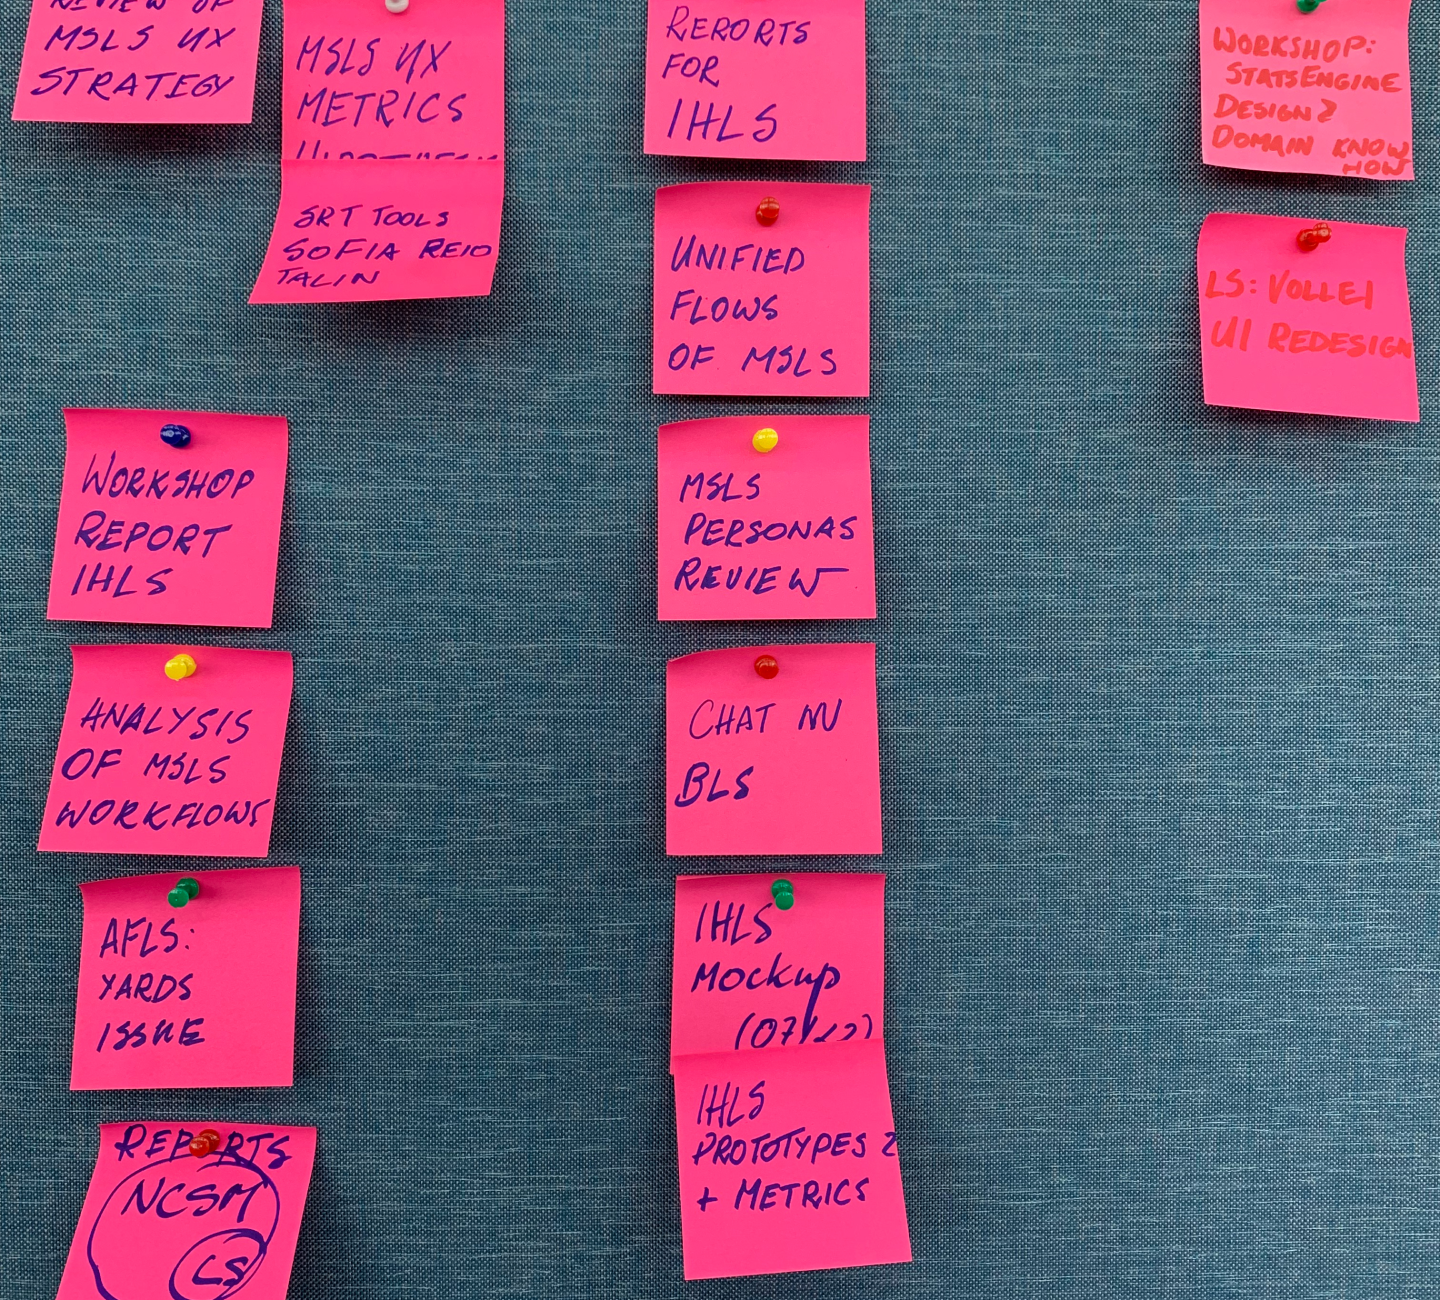 REVIEW OF
MSLS UX
STRATEGY
MSLS UX
METRICS
SRT TOOLS
SOFIA REIO
TALIN
WORKSHOP
REPORT
IHLS
ANALYSIS
OF MSLS
WORKFLOWS
AFLS:
YARDS
ISSUE
REPORTS
NCSM
LS
REPORTS
FOR
IHLS
UNIFIED
FLOWS
OF MSLS
MSLS
PERSONAS
REVIEW
CHAT
BLS
IHLS
Mockup
IHLS
PROTOTYPES 2
+ METRICS
WORKSHOP:
STATSENGINE
DESIGN 2
DOMAIN KNOW
HOW
LS: VOLLEI
UI REDESIGN